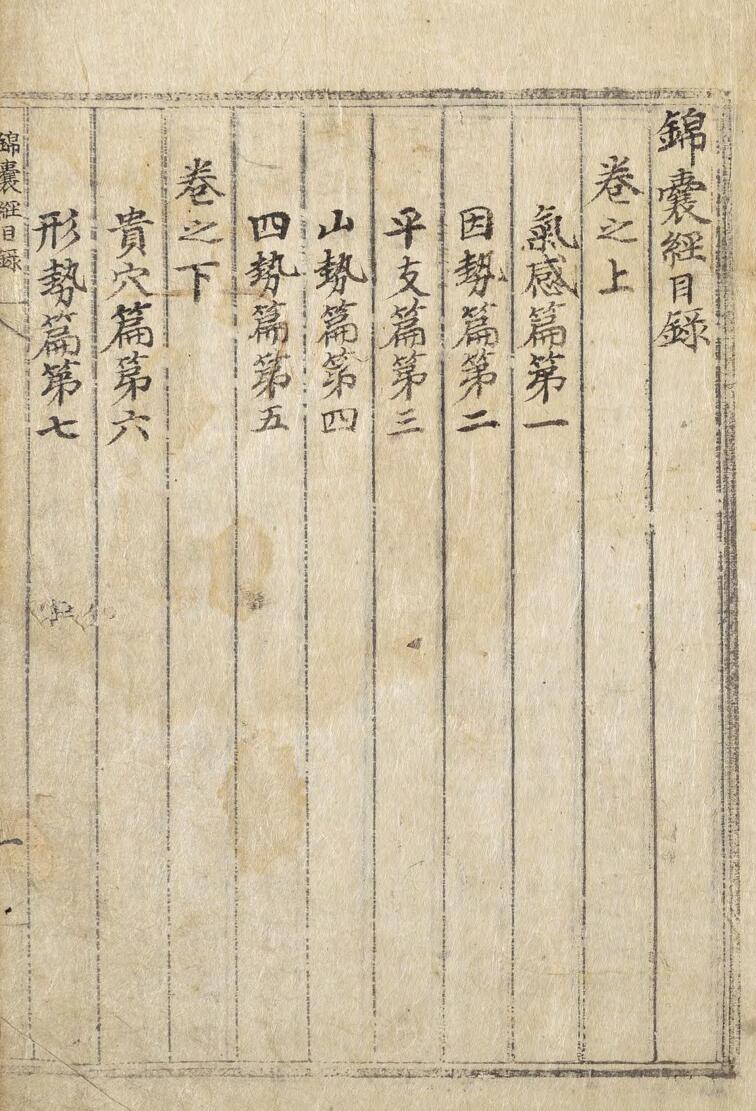 錦囊經目錄
卷之上
氣感篇第一
因勢篇第二
平支篇第三
山勢篇第四
四勢篇第五
卷之下
貴穴篇第六
形勢篇第七
錦囊經目錄
一